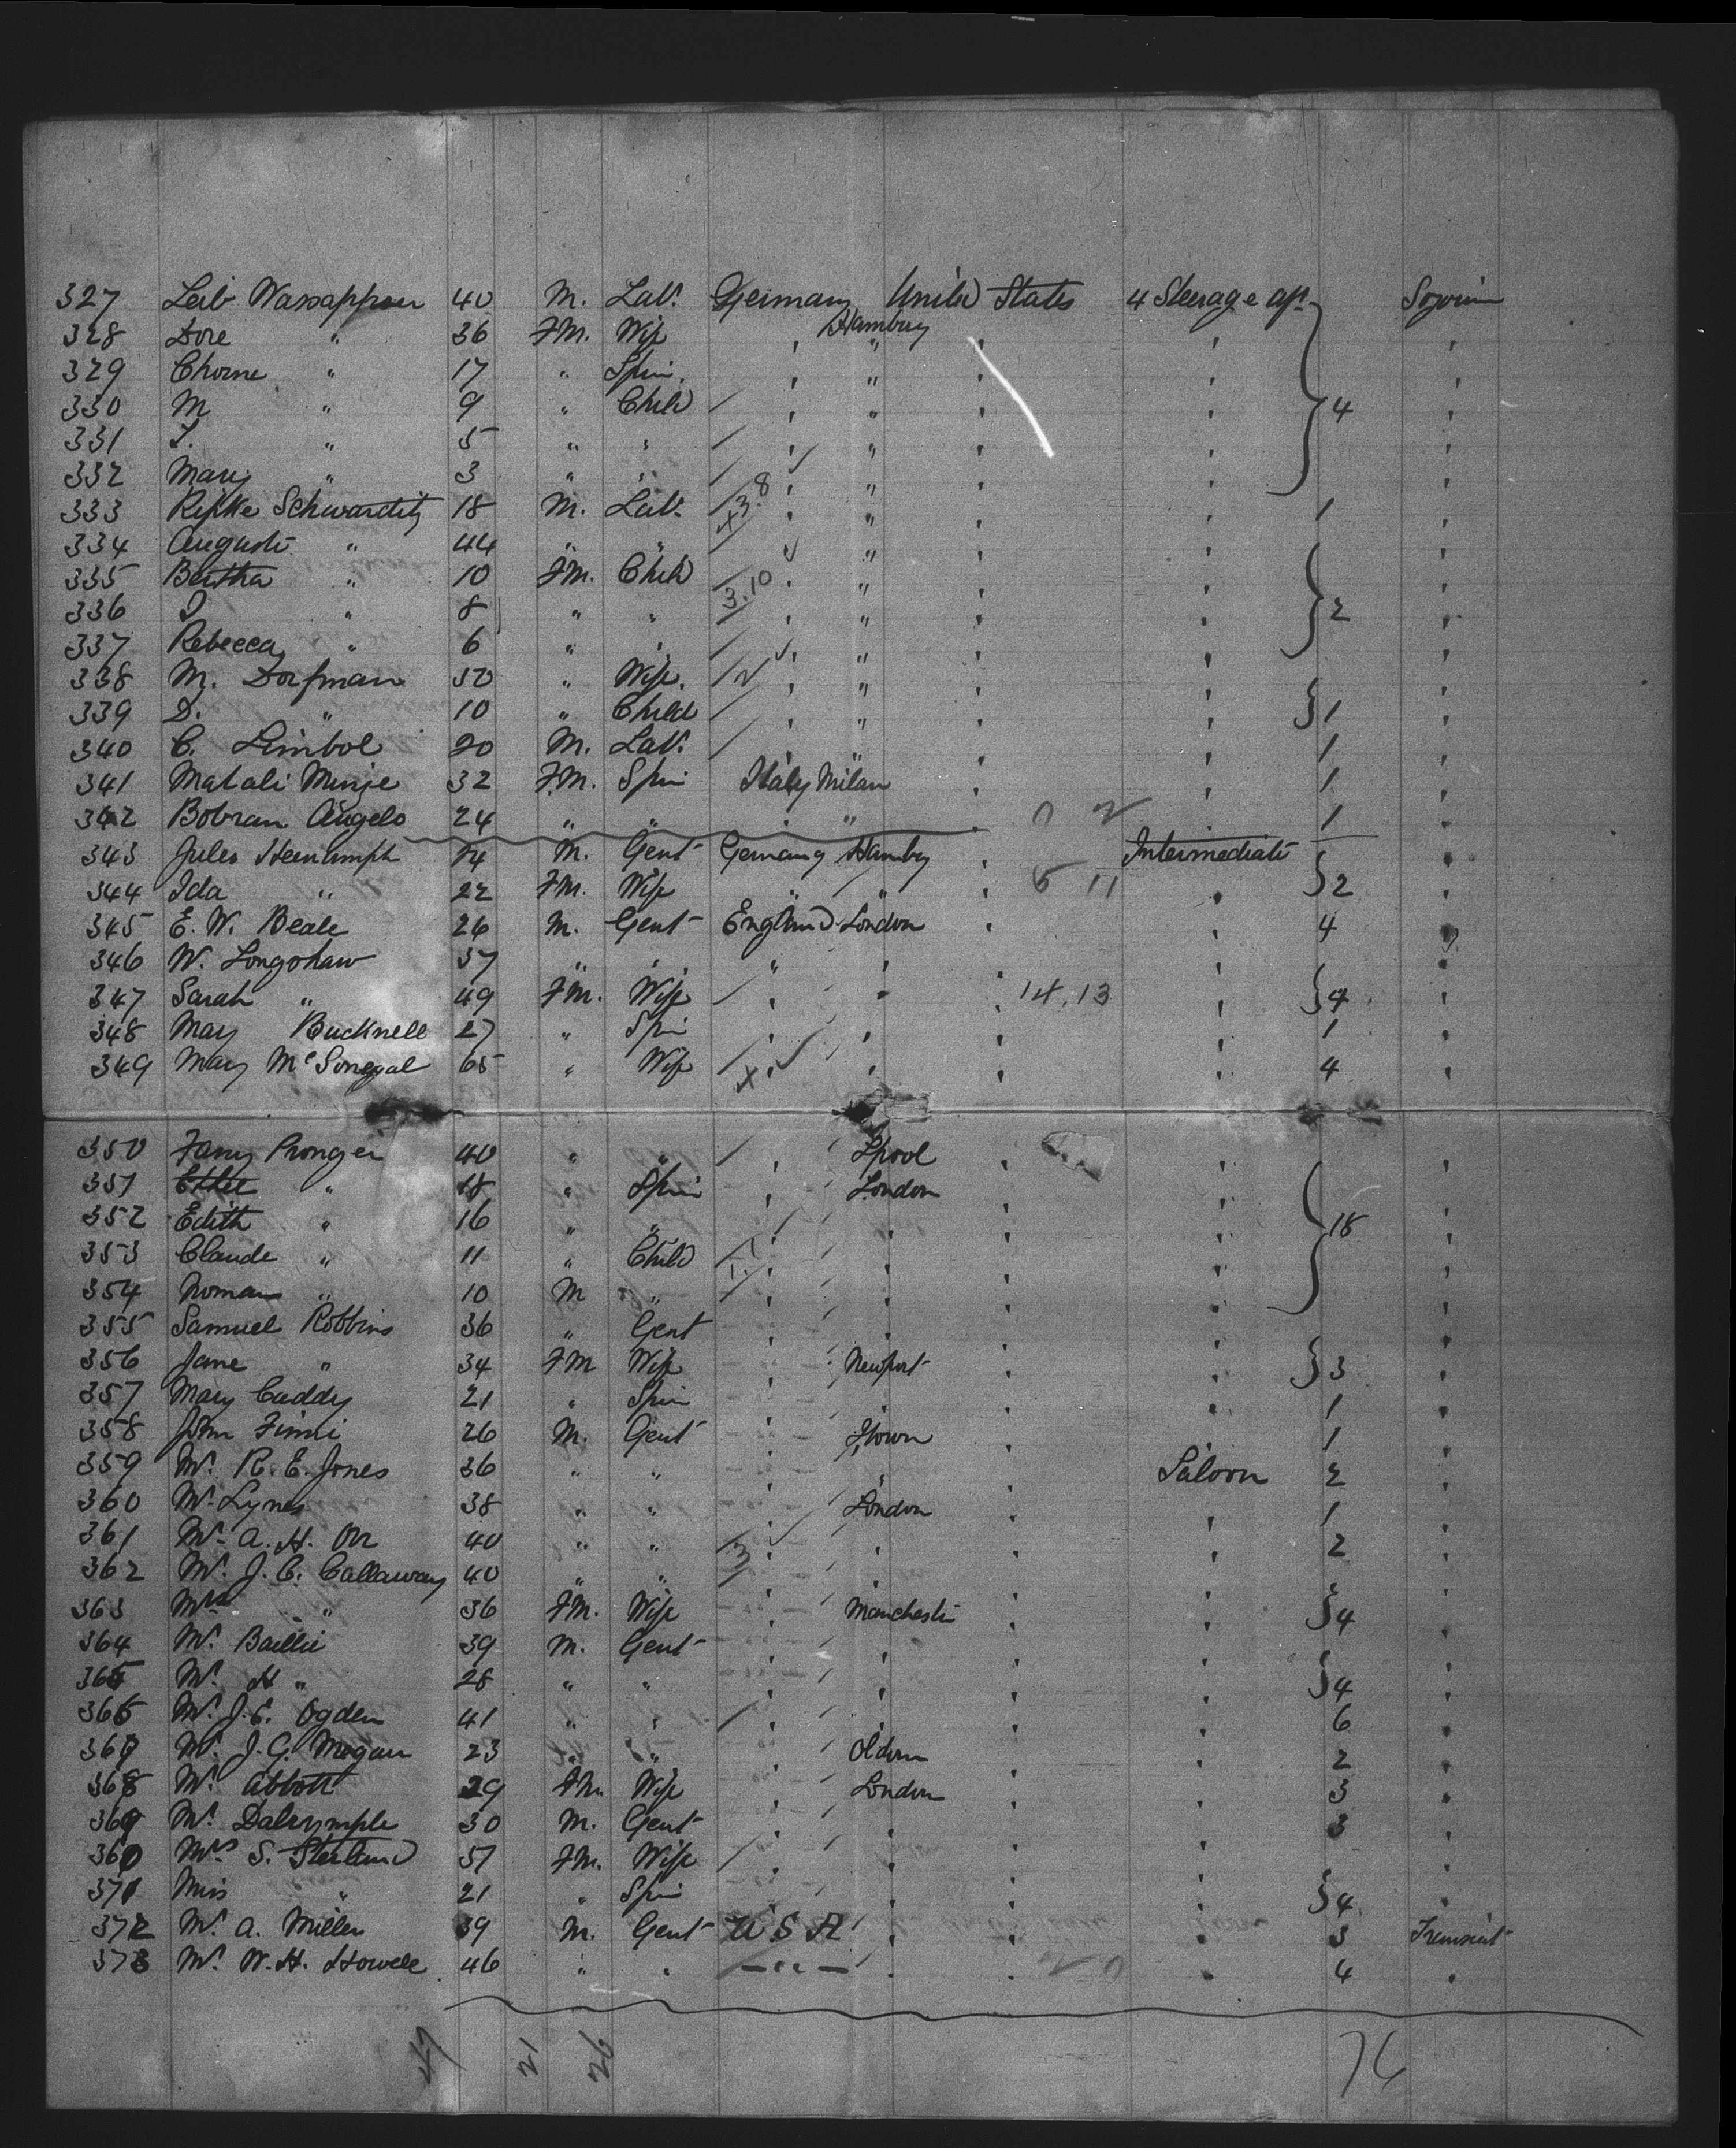 327 Leib Wassappner 40 M. Lab. Germany United States 4 Steerage aft. Sojourn
328 Dore " 36 FM. Wife " Hamburg " " "
329 Chorne " 17 " Spin. " " " " "
330 M " 9 " Child / " " " " 4 "
331 I. " 5 " " / " " " " "
332 Mary " 3 " " / " " " " "
333 Rifke Schwarditz 18 M. Lab. / " " " " 1 "
x 3. 8
334 Auguste " 44 " " / " " " " "
335 Bertha " 10 FM. Child / " " " " "
3. 10
336 I " 8 " " " " " " 2 "
337 Rebecca " 6 " " / " " " " "
338 M. Dorfman 50 " Wife. / " " " " "
339 D. " 10 " Child / " " " " 1 "
340 C. Limbol 20 M. Lab. / " " " " 1 "
341 Matali Minje 32 FM. Spin Italy Milan " " 1 "
342 Bobran Angelo 24 " " " " " 0 2 " 1 "
343 Jules Steenkmph 24 M. Gent Germany Hambg " Intermediate "
344 Ida " 22 FM. Wife " " " 6 11 " 2 "
345 E. W. Beale 26 M. Gent England London " " 4 "
346 W. Longshaw 57 " " " " " "
347 Sarah " 49 FM. Wife / " " " 14. 13 " 4 "
348 May Bucknell 27 " Spin " " " " 1 "
349 Mary McSonegal 65 " Wife / x " " " " 4 "
350 Fanny Pronger 40 " " / " Lpool " " "
351 Ethel " 18 " Spin " London " " "
352 Edith " 16 " " " " " " 18 "
353 Claude " 11 " Child / " " " " "
354 Noman " 10 M " / " " " " "
355 Samuel Robbins 36 " Gent " " " " "
356 Jane " 34 FM Wife " Newport " " 3 "
357 Mary Caddy 21 " Spin " " " " 1 "
358 John Finni 26 M. Gent " " " 1 "
359 Mr. R. E. Jones 36 " " " " " Saloon 2 "
360 Mr Lynes 38 " " " London " " 1 "
361 Mr. A. H. Orr 40 " " " " " " 2 "
362 Mr. J. C. Callaway 40 " " 3 " " " " "
363 Mrs " 36 FM. Wife " Manchester " " 4 "
364 Mr. Baillie 39 M. Gent " " " " "
365 Mr. H " 28 " " " " " " 4 "
366 Mr. J. E. Ogden 41 " " / " " " " 6 "
367 Mr. J. G. Megan 23 " " " " " 2 "
368 Mr. Abbott 29 FM. Wife " London " " 3 "
369 Mr. Dalrymple 30 M. Gent " " " " 3 "
360 Mrs S. Sterland 57 FM. Wife / " " " " "
371 Miss " 21 " Spin " " " " 4 "
372 Mr. A. Miller 39 M. Gent U S A " " " 3 Transient
373 Mr. W. H. Howell 46 " " — " — " " 20 " 4 "
47 21 26 76